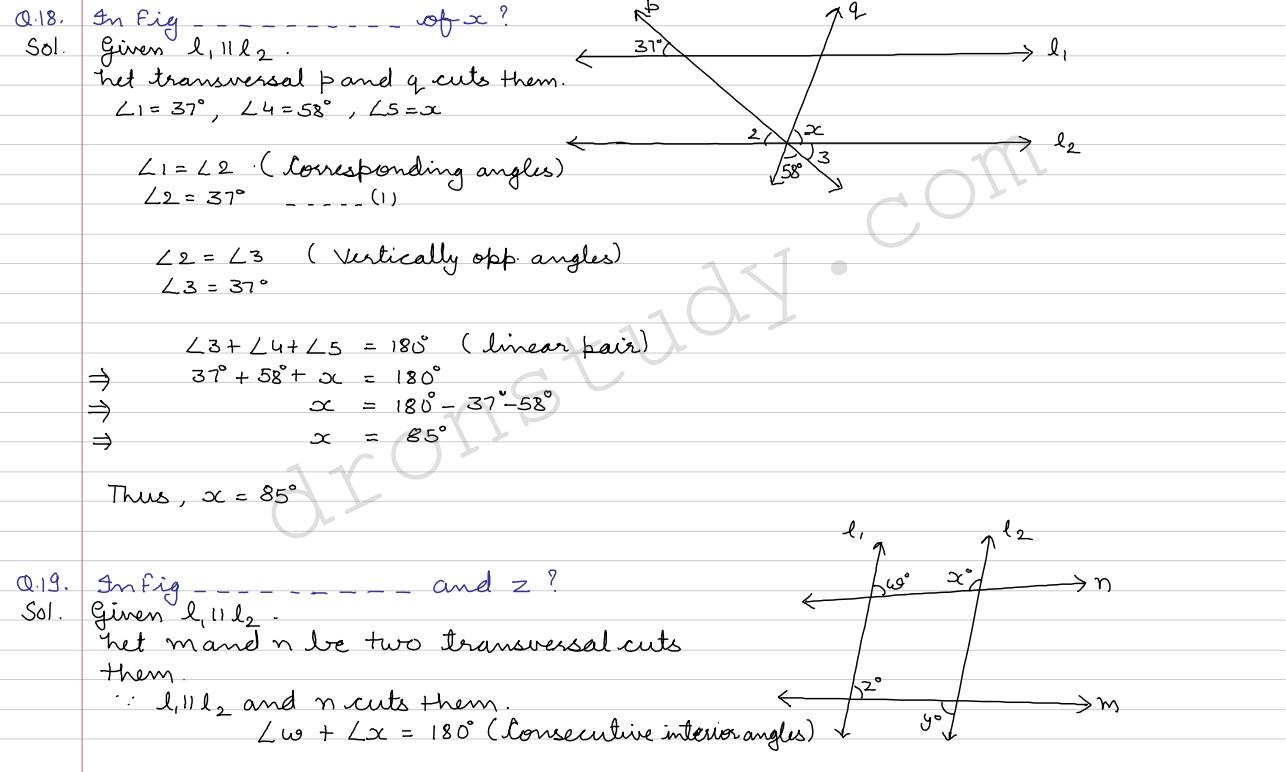 Q.18. In Fig _ _ _ _ _ _ _ _ _ _ of x ?
Sol. Given l₁ || l₂ .
Let transversal p and q cuts them.
∠1 = 37°, ∠4 = 58° , ∠5 = x
∠1 = ∠2 . ( Corresponding angles)
∠2 = 37° _ _ _ _ _ (1)
∠2 = ∠3 ( Vertically opp. angles)
∠3 = 37°
∠3 + ∠4 + ∠5 = 180° ( linear pair)
⇒ 37° + 58° + x = 180°
⇒ x = 180° – 37° – 58°
⇒ x = 85°
Thus , x = 85°
p
q
37°
l₁
2
x
l₂
58°
3
Q.19. In Fig _ _ _ _ _ _ _ _ _ and z ?
Sol. Given l₁ || l₂ .
Let m and n be two transversal cuts
them.
∵ l₁ || l₂ and n cuts them.
∠w + ∠x = 180° (Consecutive interior angles)
l₁
l₂
w°
x°
n
z°
y°
m
dronstudy.com